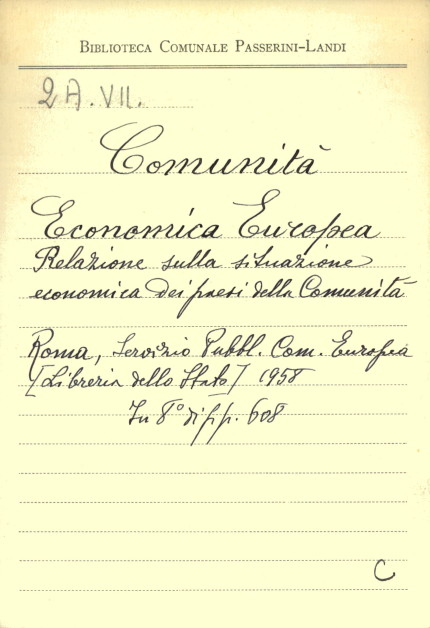 BIBLIOTECA COMUNALE PASSERINI-LANDI
2A.VII.
Comunità
Economica Europea
Relazione sulla situazione
economica dei paesi della Comunità
Roma, Servizio Pubbl. Com. Europea
[Libreria dello Stato] 1958
In 8° di pp. 608
C